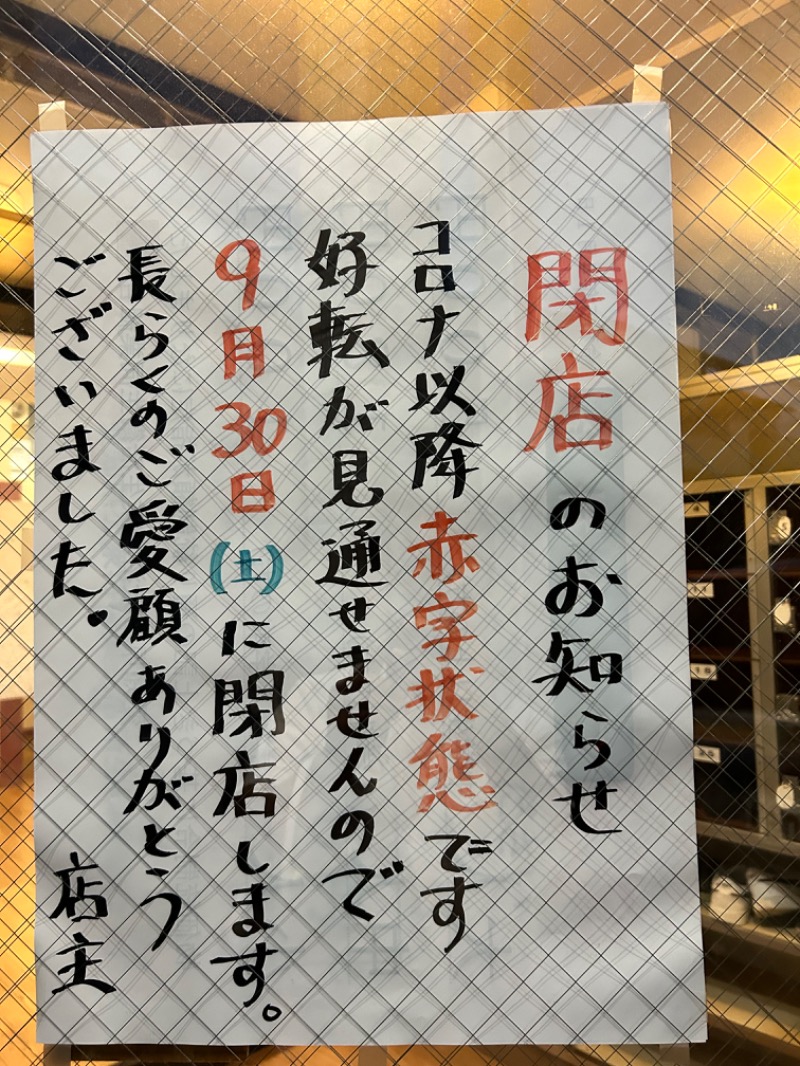 閉店のお知らせ
コロナ以降赤字状態です
好転が見通せませんので
9月30日(土)に閉店します。
長らくのご愛顧ありがとう
ございました。
店主